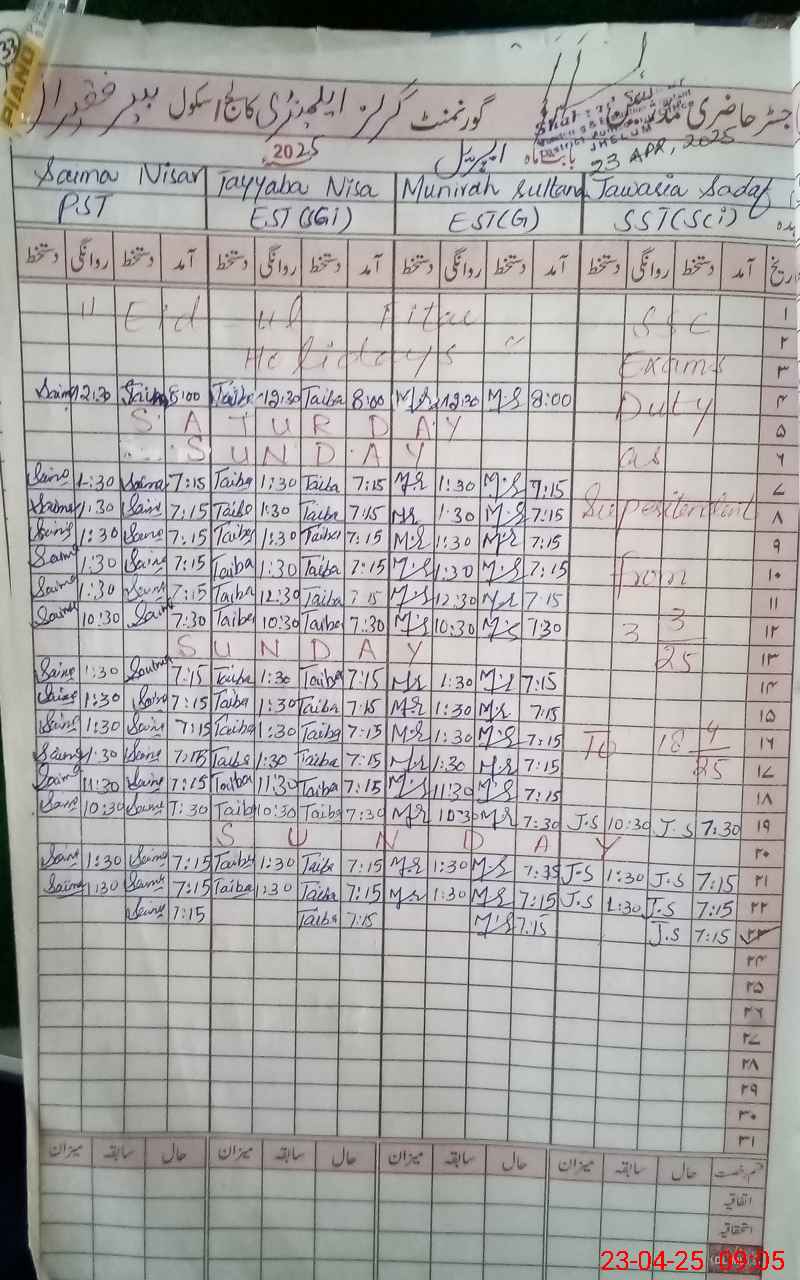 33
PIANO
رجسٹر حاضری مدرسین گورنمنٹ گرلز ایلیمنٹری کالج اسکول پیر فقیراں
بابت ماہ اپریل 2025
JHELUM
23 APR, 2025
Saima Nisar Tayyaba Nisa Munirah Sultana Jawaria Sadaf
PST EST(SGi) EST(G) SST(SCi)
تاریخ آمد دستخط روانگی دستخط آمد دستخط روانگی دستخط آمد دستخط روانگی دستخط آمد دستخط روانگی دستخط
" Eid ul Fitar SSC ۱
۲
Holidays " Exams ۳
Saima 12:30 Saima 8:00 Taiba 12:30 Taiba 8:00 M.S 12:30 M.S 8:00 Duty ۴
SATURDAY ۵
SUNDAY as ۶
Saima 1:30 Saima 7:15 Taiba 1:30 Taiba 7:15 M.S 1:30 M.S 7:15 ۷
Saima 1:30 Saima 7:15 Taiba 1:30 Taiba 7:15 M.S 1:30 M.S 7:15 Supesitendant ۸
Saima 1:30 Saima 7:15 Taiba 1:30 Taiba 7:15 M.S 1:30 M.S 7:15 ۹
Saima 1:30 Saima 7:15 Taiba 1:30 Taiba 7:15 M.S 1:30 M.S 7:15 from ۱۰
Saima 1:30 Saima 7:15 Taiba 12:30 Taiba 7:15 M.S 12:30 M.S 7:15 ۱۱
Saima 10:30 Saima 7:30 Taiba 10:30 Taiba 7:30 M.S 10:30 M.S 7:30 3 3 ۱۲
SUNDAY 25 ۱۳
Saima 1:30 Saima 7:15 Taiba 1:30 Taiba 7:15 M.S 1:30 M.S 7:15 ۱۴
Saima 1:30 Saima 7:15 Taiba 1:30 Taiba 7:15 M.S 1:30 M.S 7:15 ۱۵
Saima 1:30 Saima 7:15 Taiba 1:30 Taiba 7:15 M.S 1:30 M.S 7:15 To 18 4 ۱۶
Saima 1:30 Saima 7:15 Taiba 1:30 Taiba 7:15 M.S 1:30 M.S 7:15 25 ۱۷
Saima 11:30 Saima 7:15 Taiba 11:30 Taiba 7:15 M.S 11:30 M.S 7:15 ۱۸
Saima 10:30 Saima 7:30 Taiba 10:30 Taiba 7:30 M.S 10:30 M.S 7:30 J.S 10:30 J.S 7:30 ۱۹
SUNDAY ۲۰
Saima 1:30 Saima 7:15 Taiba 1:30 Taiba 7:15 M.S 1:30 M.S 7:35 J.S 1:30 J.S 7:15 ۲۱
Saima 1:30 Saima 7:15 Taiba 1:30 Taiba 7:15 M.S 1:30 M.S 7:15 J.S 1:30 J.S 7:15 ۲۲
Saima 7:15 Taiba 7:15 M.S 7:15 J.S 7:15 ۲۳
۲۴
۲۵
۲۶
۲۷
۲۸
۲۹
۳۰
۳۱
قسم رخصت حال سابقہ میزان حال سابقہ میزان حال سابقہ میزان حال سابقہ میزان
اتفاقیہ
استحقاقیہ
23-04-25 09:05